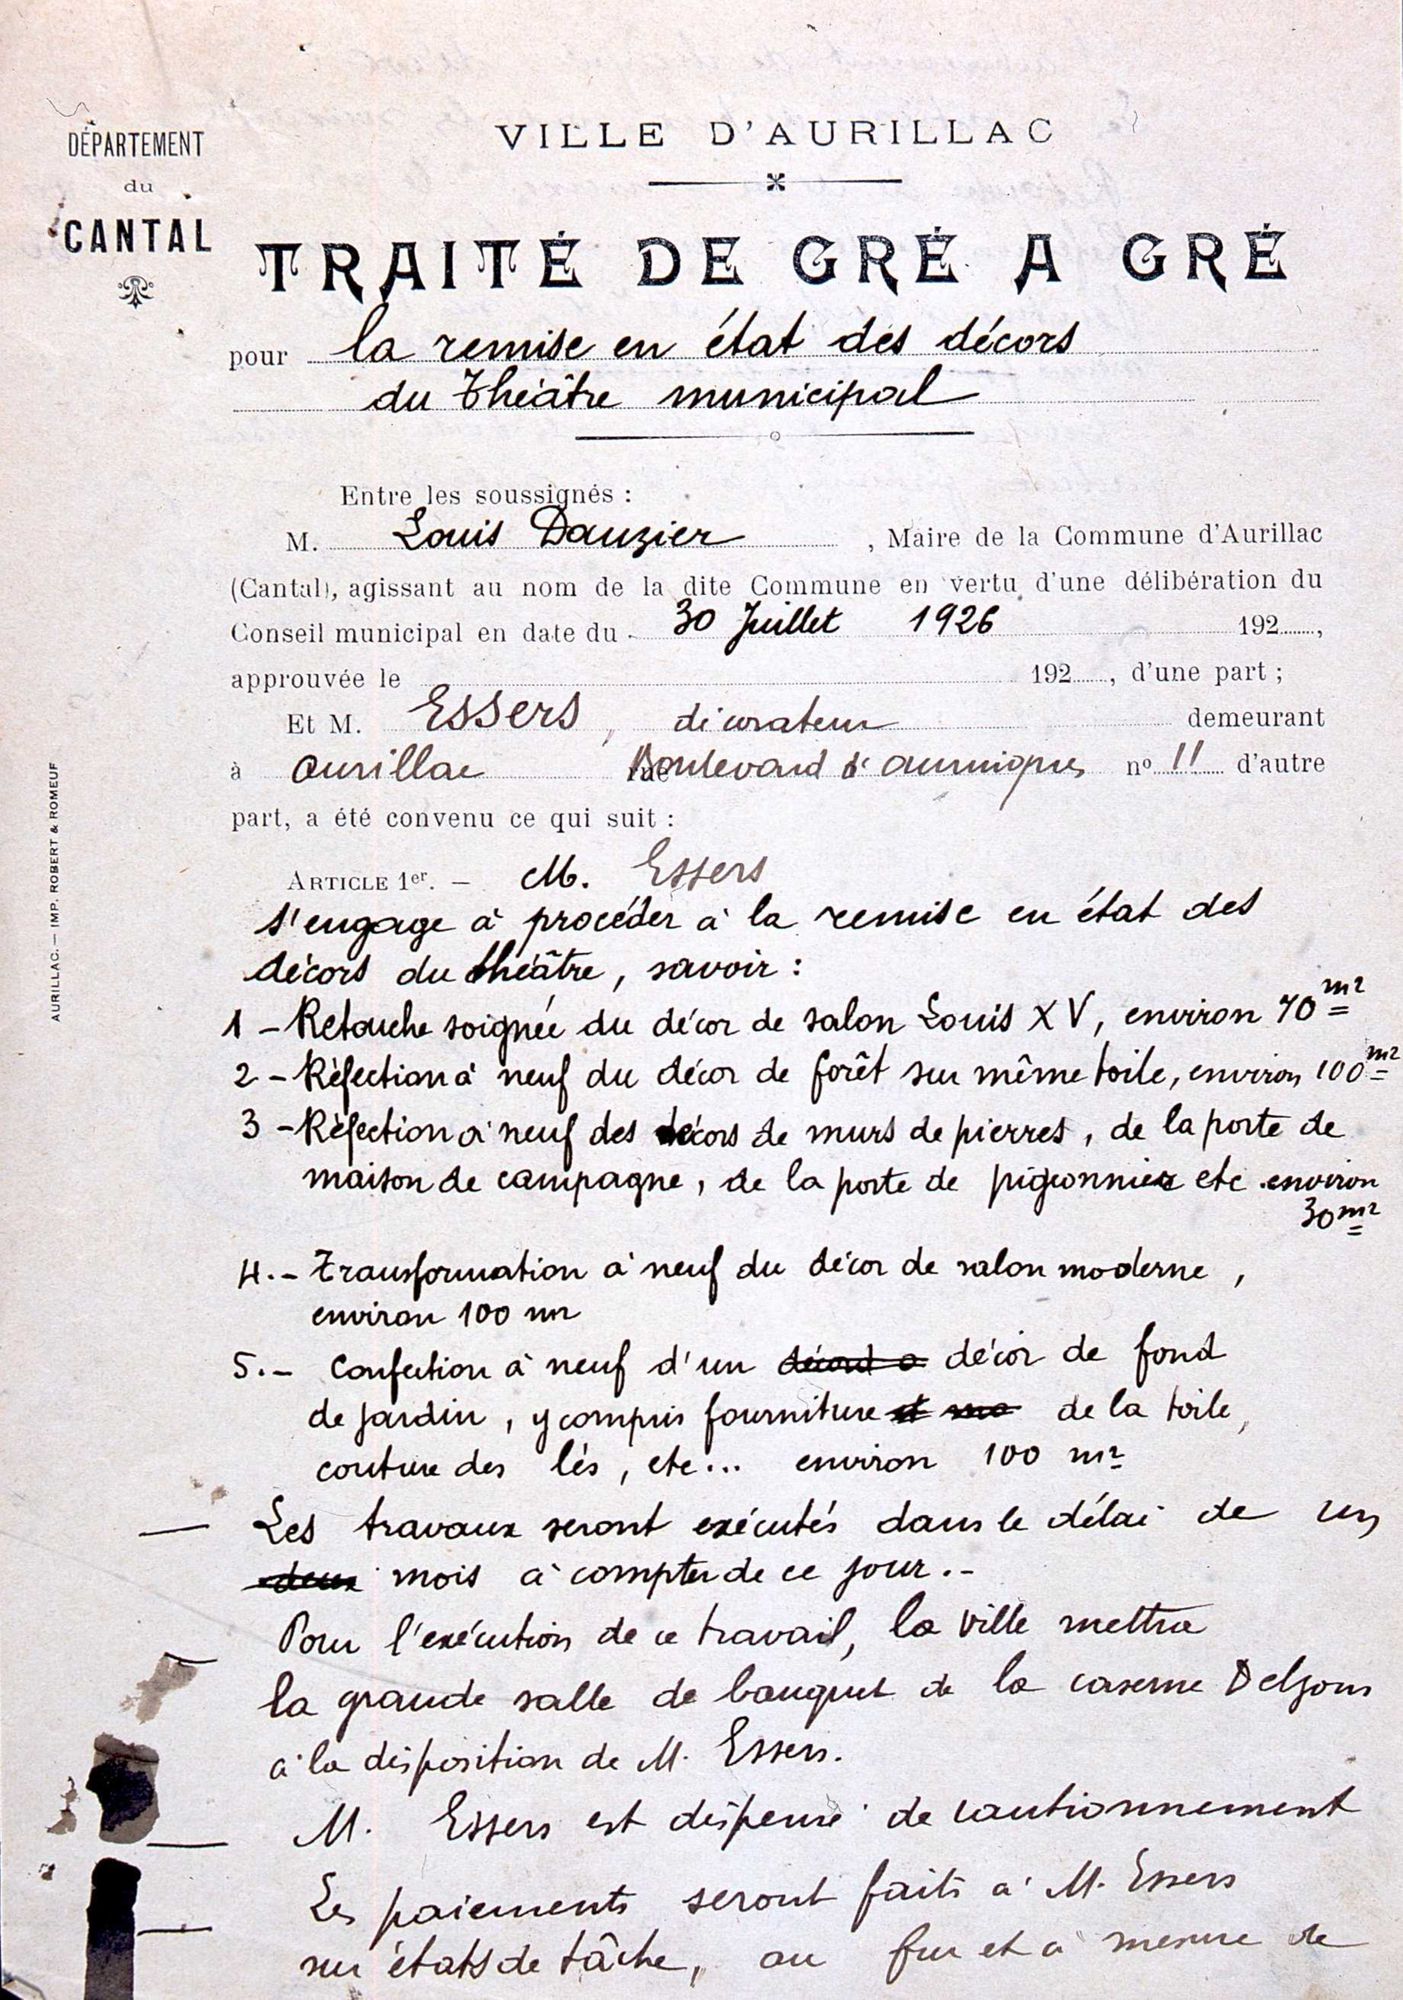 DÉPARTEMENT
du
CANTAL
VILLE D'AURILLAC
TRAITÉ DE GRÉ A GRÉ
pour la remise en état des décors
du Théâtre municipal
Entre les soussignés :
M. Louis Dauzier , Maire de la Commune d'Aurillac
(Cantal), agissant au nom de la dite Commune en vertu d'une délibération du
Conseil municipal en date du 30 Juillet 1926 192......,
approuvée le 192......, d'une part ;
Et M. Essers, décorateur demeurant
à Aurillac rue Boulevard d'aurinques n° 11 d'autre
part, a été convenu ce qui suit :
ARTICLE 1er. — M. Essers
s'engage à procéder à la remise en état des
décors du théâtre, savoir :
1 - Retouche soignée du décor de salon Louis XV, environ 70 m2
2 - Réfection à neuf du décor de forêt sur même toile, environ 100 m2
3 - Réfection à neuf des décors de murs de pierres, de la porte de
maison de campagne, de la porte de pigeonnier etc. environ
30 m2
4.- Transformation à neuf du décor de salon moderne,
environ 100 m2
5.- Confection à neuf d'un décord a décor de fond
de jardin, y compris fourniture et mo de la toile,
couture des lés, etc... environ 100 m2
— Les travaux seront exécutés dans le délai de un
deux mois à compter de ce jour.-
Pour l'exécution de ce travail, la ville mettra
la grande salle de banquet de la caserne Delzons
à la disposition de M. Essers.
M. Essers est dispensé de cautionnement
Les paiements seront faits à M. Essers
sur états de tâche, au fur et à mesure de
AURILLAC. — IMP. ROBERT & ROMEUF